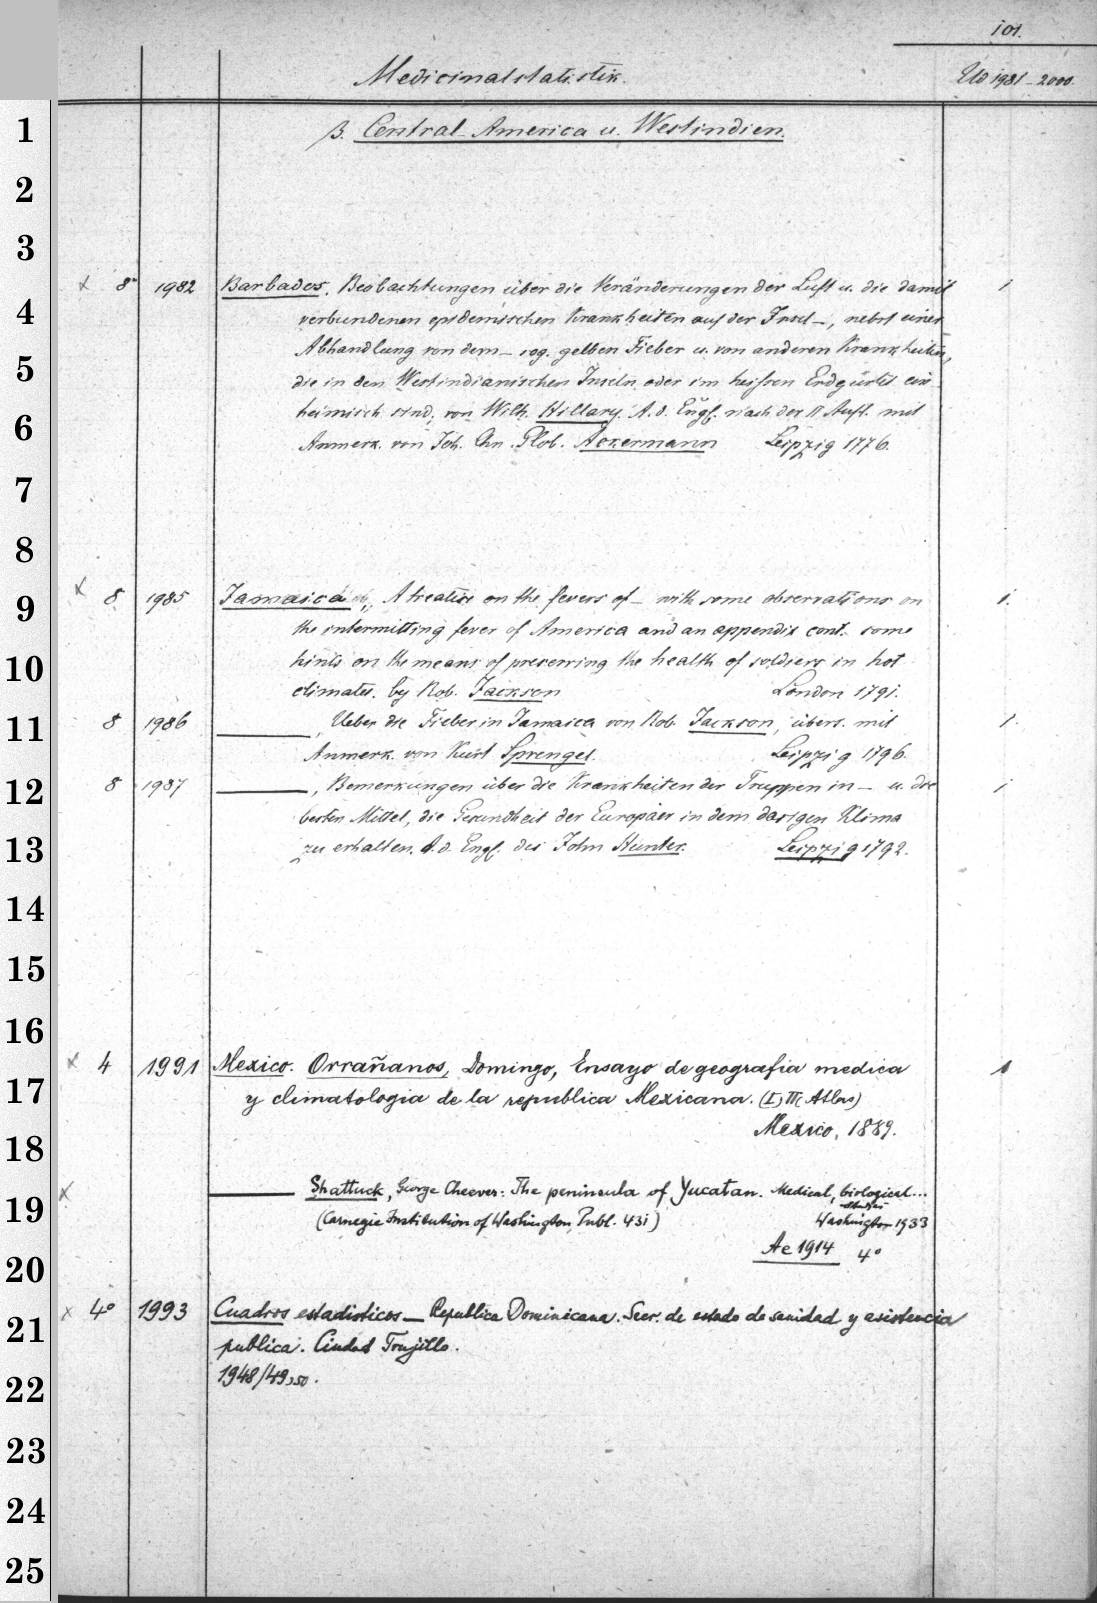 101.
Medicinalstatistik.
Ud 1981–2000.
1
β. Central-America u. Westindien.
2
3
x 8° 1982 Barbados. Beobachtungen über die Veränderungen der Luft u. die damit 1
4
verbundenen epidemischen Krankheiten auf der Insel –, nebst einer
5
Abhandlung von dem – sog. gelben Fieber u. von anderen Krankheiten,
die in den Westindianischen Inseln oder im heissen Erdgürtel ein-
6
heimisch sind, von Wilh. Hillary. A. d. Engl. nach der II Aufl. mit
Anmerk. von Joh. Chn. Glob. Ackermann Leipzig 1776.
7
8
9
x 8 1985 Jamaica, A treatise on the fevers of – with some observations on 1.
the intermitting fever of America and an appendix cont. some
10
hints on the means of preserving the health of soldiers in hot
climates. by Rob. Jackson London 1791.
11
8 1986 ———, Ueber die Fieber in Jamaica von Rob. Jackson, übers. mit 1.
Anmerk. von Kurt Sprengel. Leipzig 1796.
12
8 1987 ———, Bemerkungen über die Krankheiten der Truppen in – u. die 1
besten Mittel, die Gesundheit der Europäer in dem dasigen Klima
13
zu erhalten. A. d. Engl. des John Hunter. Leipzig 1792.
14
15
16
x 4 1991 Mexico. Orrañanos, Domingo, Ensayo de geografia medica 1
17
y climatologia de la republica Mexicana. (I) II (Atlas)
18
Mexico, 1889.
x ——— Shattuck, George Cheever: The peninsula of Yucatan. Medical, biological...
studies
19
(Carnegie Institution of Washington Publ. 431) Washington 1933
20
Ae 1914 4°
21
x 4° 1993 Cuadros estadisticos — Republica Dominicana. Secr. de estado de sanidad y asistencia
publica. Ciudad Trujillo.
22
1948/49,50.
23
24
25